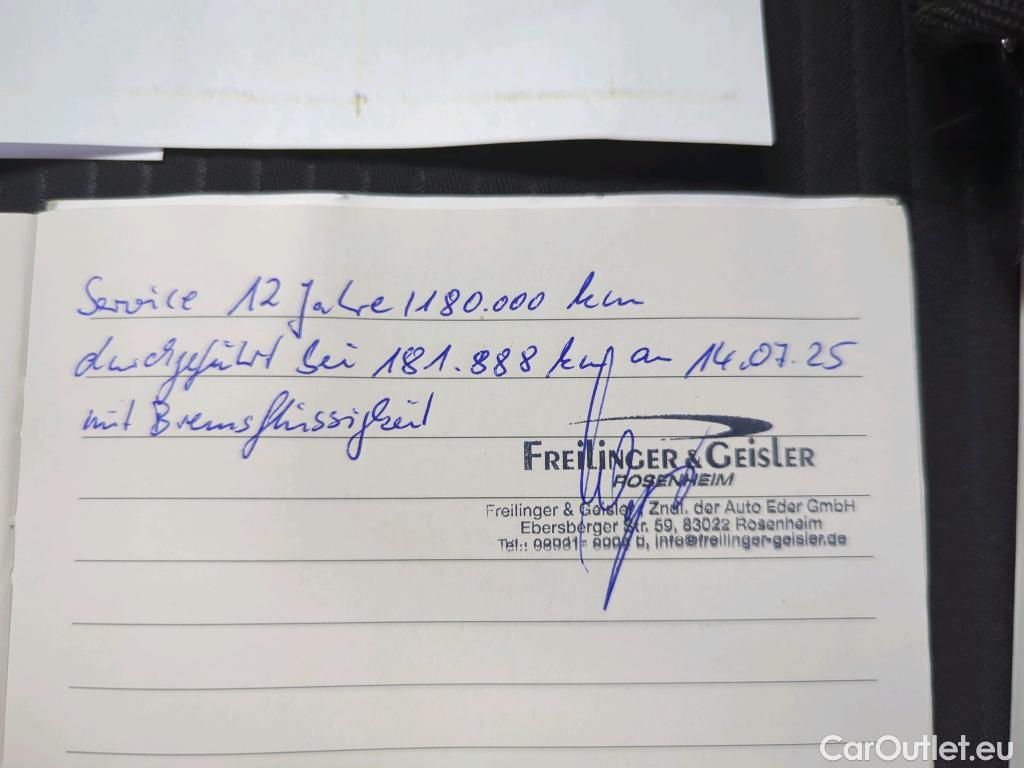 Service 12 Jahre / 180.000 km
durchgeführt bei 181.888 km am 14.07.25
mit Bremsflüssigkeit
FREILINGER & GEISLER
ROSENHEIM
Freilinger & Geisler, Zndl. der Auto Eder GmbH
Ebersberger Str. 59, 83022 Rosenheim
Tel.: info@freilinger-geisler.de
CarOutlet.eu